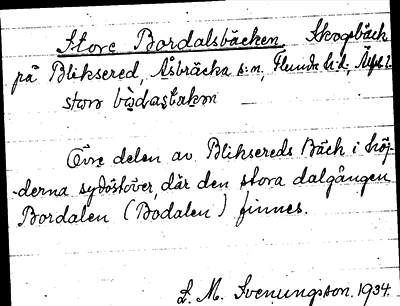 Store Bordalsbäcken. Skogsbäck
på Bliksered, Åsbräcka s:n, Flundre h:d, Älvsb. l.
stora
Övre delen av Bliksereds Bäck i höj-
-derna sydöstöver, där den stora dalgången
Bordalen (Bodalen) finnes.
L. M. Svenungsson. 1934.